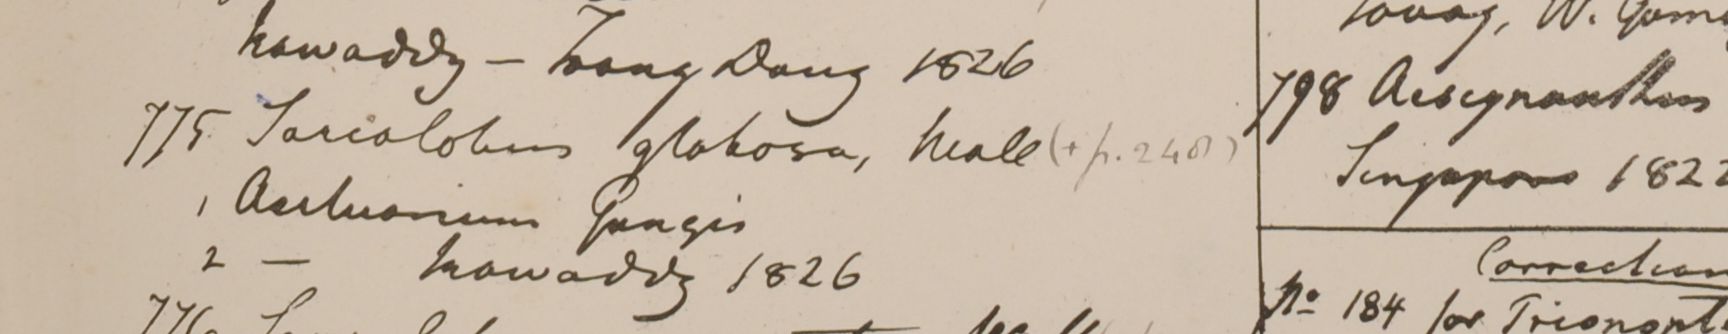 Irawaddy – Dong 1826
775 Sarcolobus globosa, Wall (+ p. 248)
1 Aestuarium Gangis
2 — Irawaddy 1826
776
Tavoy, W. Gom
798 Aescynanthus
Singapore 1822
Correction
No 184 for